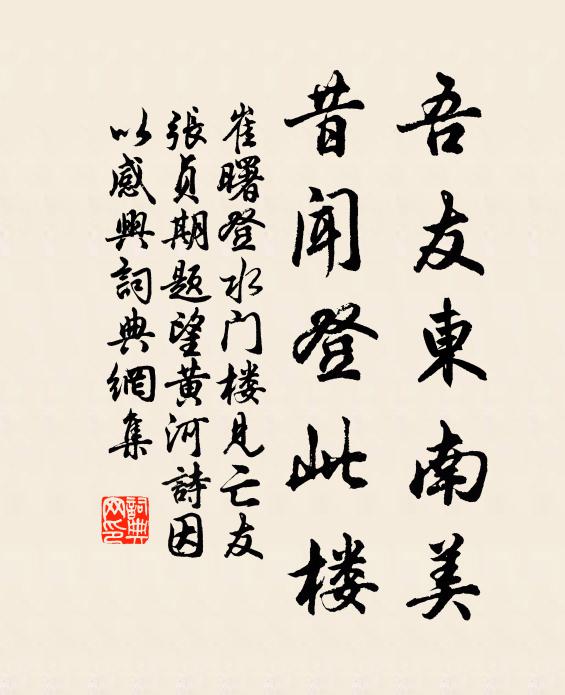 吾友東南美
昔聞登此楼
崔曙登水门楼見亡友
張貞期题望黄河詩因
以感興詞典網集
詞典
网印